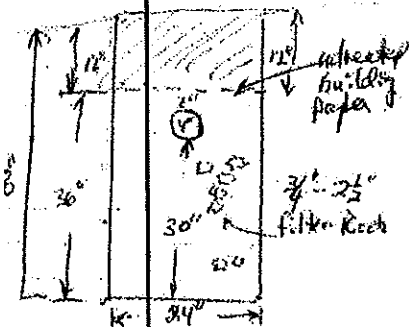 12"
12"
untreated
building
paper
36"
30"
3/4" - 2 1/2"
filter Rock
24"